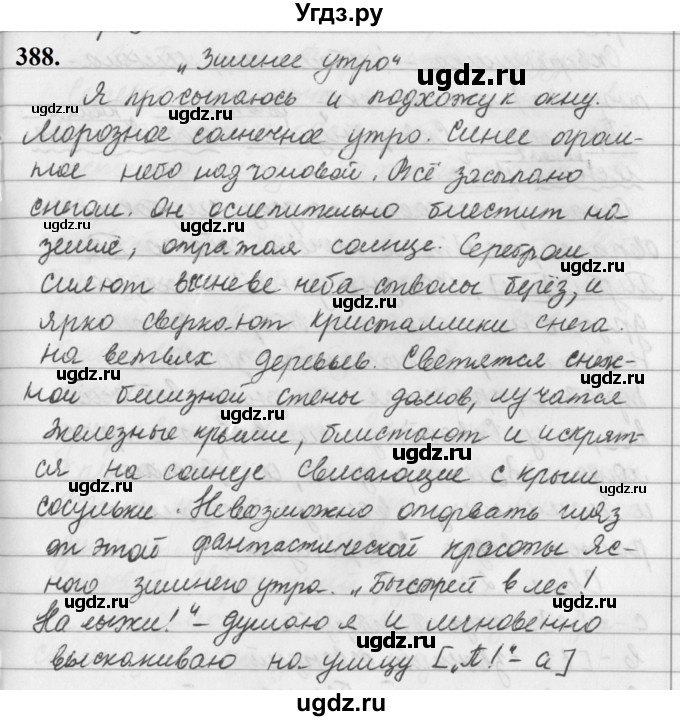 Угдз.ру
388. „Зимнее утро“
Я просыпаюсь и подхожу к окну.
Морозное солнечное утро. Синее огром-
ное небо над головой. Всё засыпано
снегом. Он ослепительно блестит на
земле, отражая солнце. Серебром
сияют в синеве неба стволы берёз, и
ярко сверкают кристаллики снега
на ветвях деревьев. Светятся снеж-
ной белизной стены домов, лучатся
железные крыши, блистают и искрят-
ся на солнце свисающие с крыш
сосульки. Невозможно оторвать глаз
от этой фантастической красоты яс-
ного зимнего утра. „Быстрей в лес!
На лыжи!“ – думаю я и мгновенно
выскакиваю на улицу [„П!“ – а]
ugdz.ru